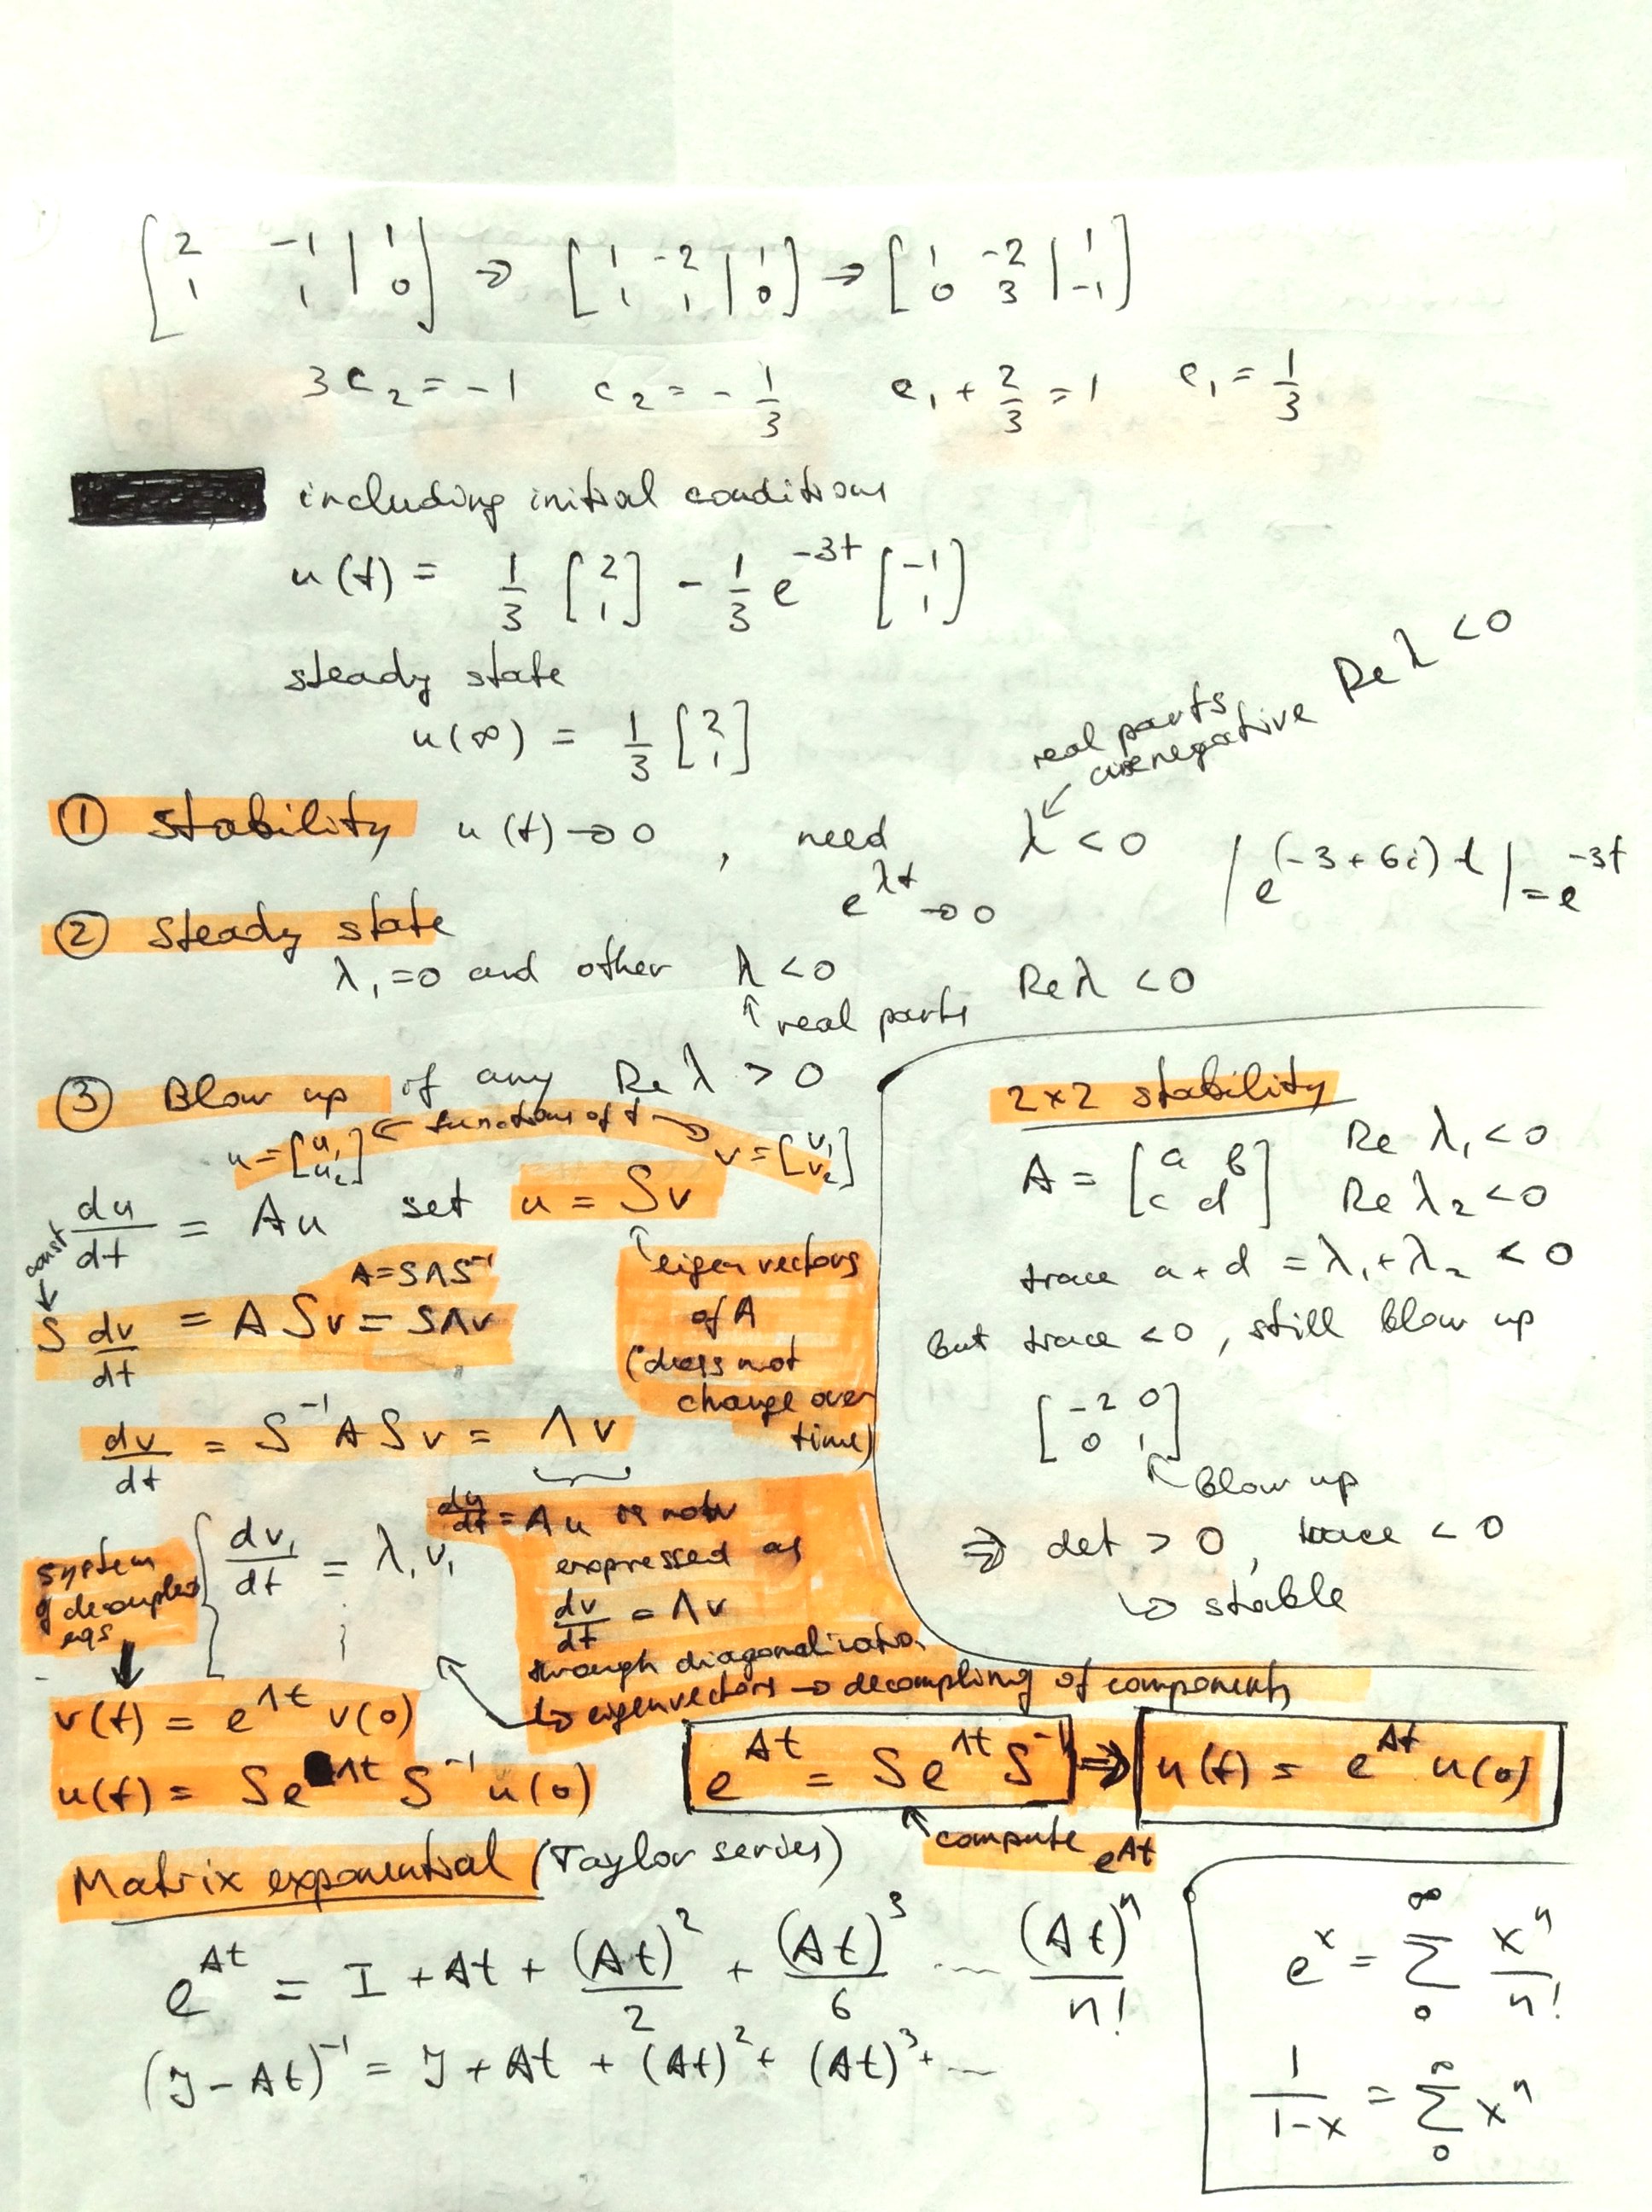 [2 -1 | 1; 1 1 | 0] ⇒ [1 -2 | 1; 1 1 | 0] → [1 -2 | 1; 0 3 | -1]
3c₂ = -1   c₂ = -1/3   c₁ + 2/3 = 1   c₁ = 1/3
including initial conditions
u(t) = 1/3 [2; 1] - 1/3 e^(-3t) [-1; 1]
steady state
u(∞) = 1/3 [2; 1]
real parts are negative Re λ < 0
① stability u(t) → 0, need λ < 0
e^(λt) → 0
|e^((-3+6i)t)| = e^(-3t)
② Steady state
λ₁ = 0 and other λ < 0   Re λ < 0
↑ real parts
③ Blow up if any Re λ > 0
u = [u₁; u₂] ← functions of t → v = [v₁; v₂]
du/dt = Au set u = Sv
↑ eigenvectors
of A
(does not
change over
time)
const
↓
A = SΛS⁻¹
S dv/dt = A Sv = SΛv
dv/dt = S⁻¹ A S v = Λv
du/dt = Au is now
expressed as
dv/dt = Λv
through diagonalization
↳ eigenvectors → decoupling of components
system
of decoupled
eqs
↓
{ dv₁/dt = λ₁v₁
⋮
v(t) = e^(Λt) v(0)
u(t) = S e^(Λt) S⁻¹ u(0)
2×2 stability
A = [a b; c d]   Re λ₁ < 0
Re λ₂ < 0
trace a + d = λ₁ + λ₂ < 0
but trace < 0, still blow up
[-2 0; 0 1]
↖ blow up
⇒ det > 0, trace < 0
↳ stable
e^(At) = S e^(Λt) S⁻¹ ⇒ u(t) = e^(At) u(0)
↖ compute e^(At)
Matrix exponential (Taylor series)
e^(At) = I + At + (At)²/2 + (At)³/6 ... (At)ⁿ/n!
(I - At)⁻¹ = I + At + (At)² + (At)³ + ...
e^x = ∑₀^∞ xⁿ/n!
1/(1-x) = ∑₀^∞ xⁿ